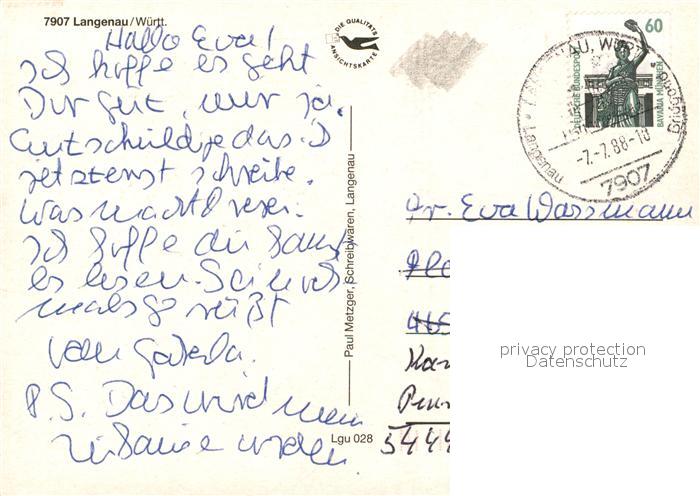 7907 Langenau/Württ.
DIE QUALITÄTS
ANSICHTSKARTE
Hallo Eva!
Ich hoffe es geht
Dir gut, mir ja.
Entschuldige das i
jetzt erst schreibe.
Was macht
Ich hoffe du kannst
es lesen. Sei
mals gegrüßt
von
P.S. Das wird mein
zu Hause werden
Paul Metzger, Schreibwaren, Langenau
Lgu 028
60
DEUTSCHE BUNDESPOST
BAVARIA MÜNCHEN
-7.-7.88-10
7907
Fr. Eva Wassmann
465
Kar
5444
privacy protection
Datenschutz